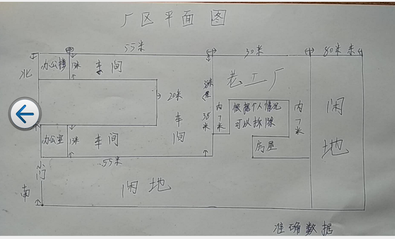 厂区平面图
55米
30米
80米
北
办公楼
车间
老工厂
20米
车间
根据个人情况
可以拆除
闲地
办公室
车间
房屋
55米
门
南
闲地
准确数据